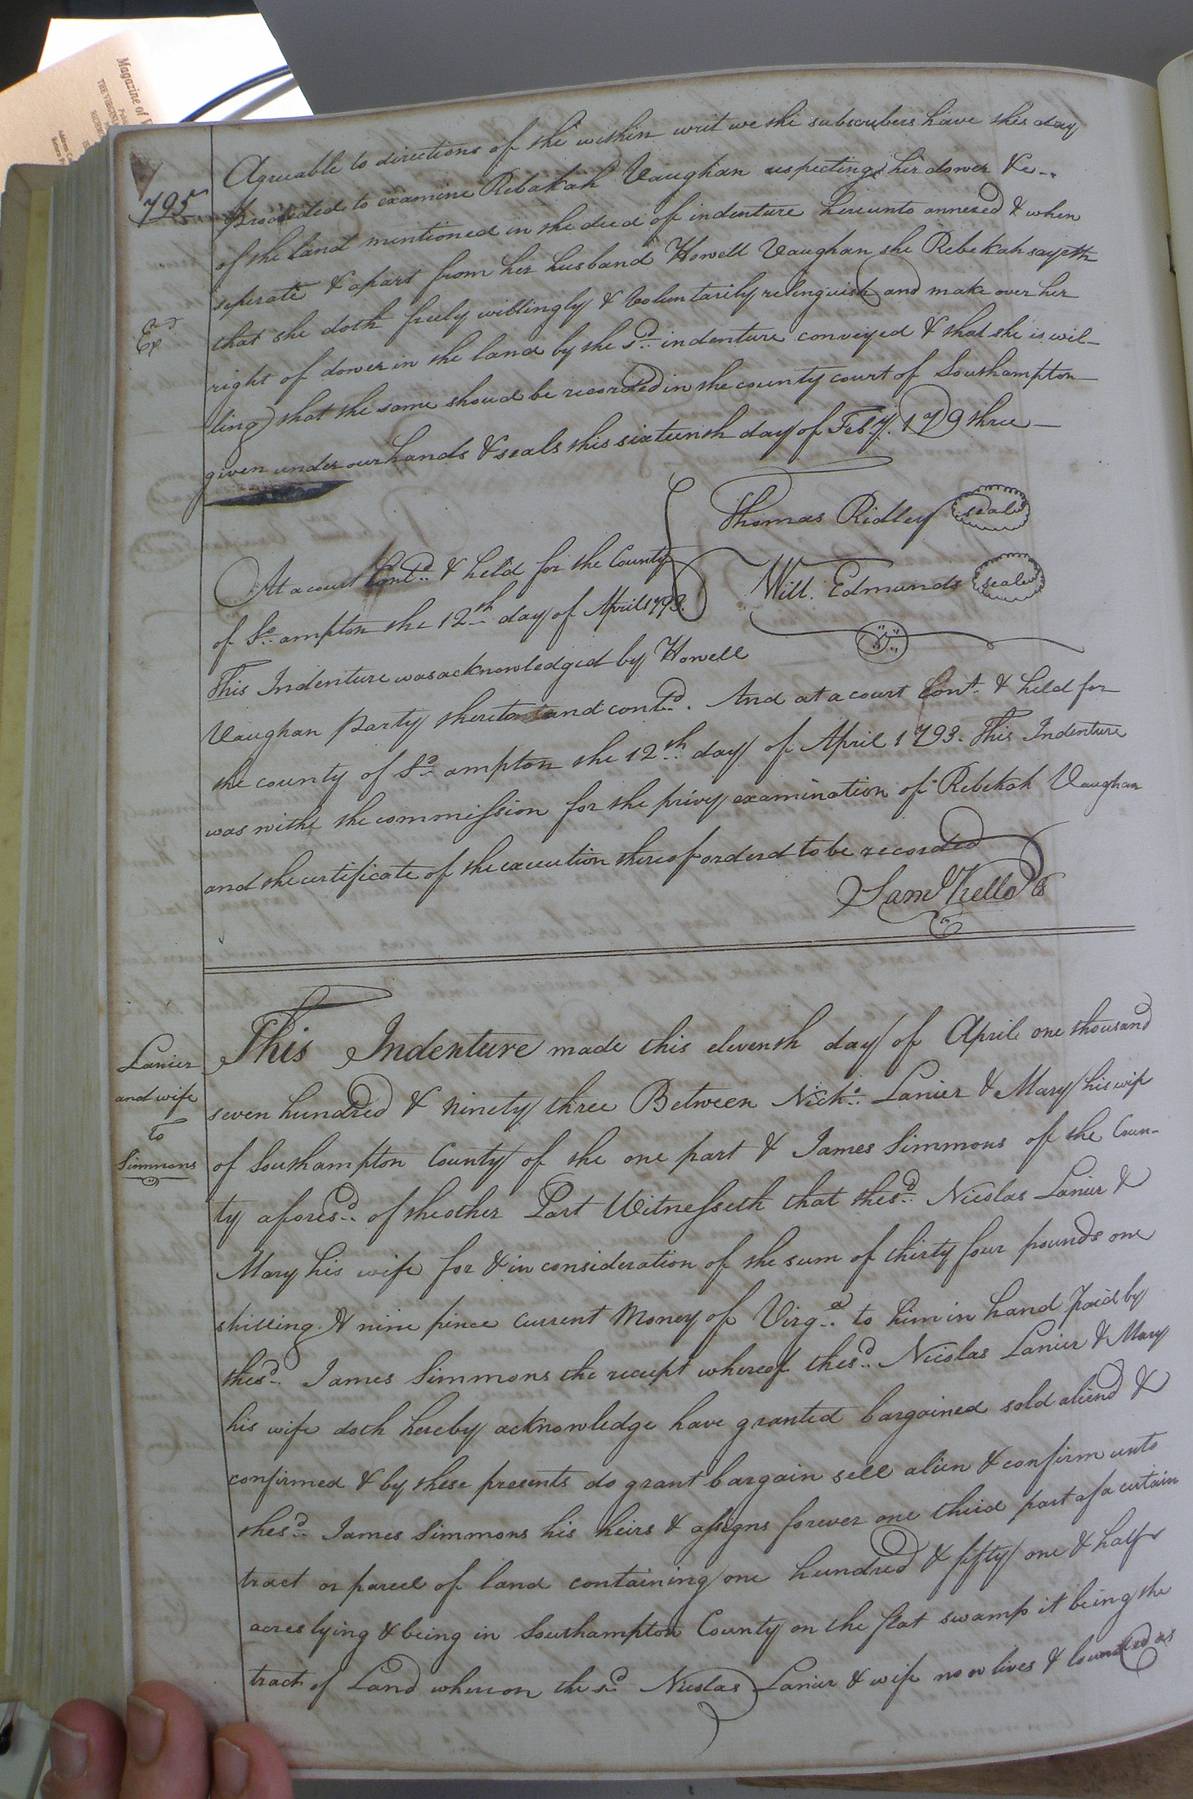 Magazine of
THE VIRGINIA
795
Agreeable to directions of the within writ we the subscribers have this day
proceeded to examine Rebakah Vaughan respecting her dower &c..
of the land mentioned in the deed of indenture hereunto annexed & when
seperate & apart from her husband Howell Vaughan she Rebekah sayeth
Exd
that she doth freely willingly & voluntarily relinguish and make over her
right of dower in the land by the sd. indenture conveyed & that she is wil-
ling that the same shoud be recorded in the county court of Southampton
given under our hands & seals this sixteenth day of Feby. 179 three
Thomas Ridley seal
Will. Edmunds seal
At a court Contd. & held for the County
of So. ampton the 12th day of April 1793.
This Indenture was acknowledged by Howell
Vaughan party thereto and contd. And at a court Cont. & held for
the county of So. ampton the 12th day of April 1793. This Indenture
was withe the commission for the privy examination of Rebekah Vaughan
and the certificate of the execution thereof orderd to be recorded
Saml Kello
Lanier
and wife
to
Simmons
This Indenture made this eleventh day of April one thousand
seven hundred & ninety three Between Nichs. Lanier & Mary his wife
of Southampton County of the one part & James Simmons of the Coun-
ty aforesd. of the other Part Witnesseth that the sd. Nicolas Lanier &
Mary his wife for & in consideration of the sum of thirty four pounds one
shilling & nine pence current Money of Virga. to him in hand paid by
the sd. James Simmons the receipt whereof the sd. Nicolas Lanier & Mary
his wife doth hereby acknowledge have granted bargained sold aliend &
confirmed & by these presents do grant bargain sell alien & confirm unto
the sd. James Simmons his heirs & assigns forever one third part of a certain
tract or parcel of land containing one hundred & fifty one & half
acres lying & being in Southampton County on the flat swamp it being the
tract of Land whereon the sd. Nicolas Lanier & wife now lives & bounded as